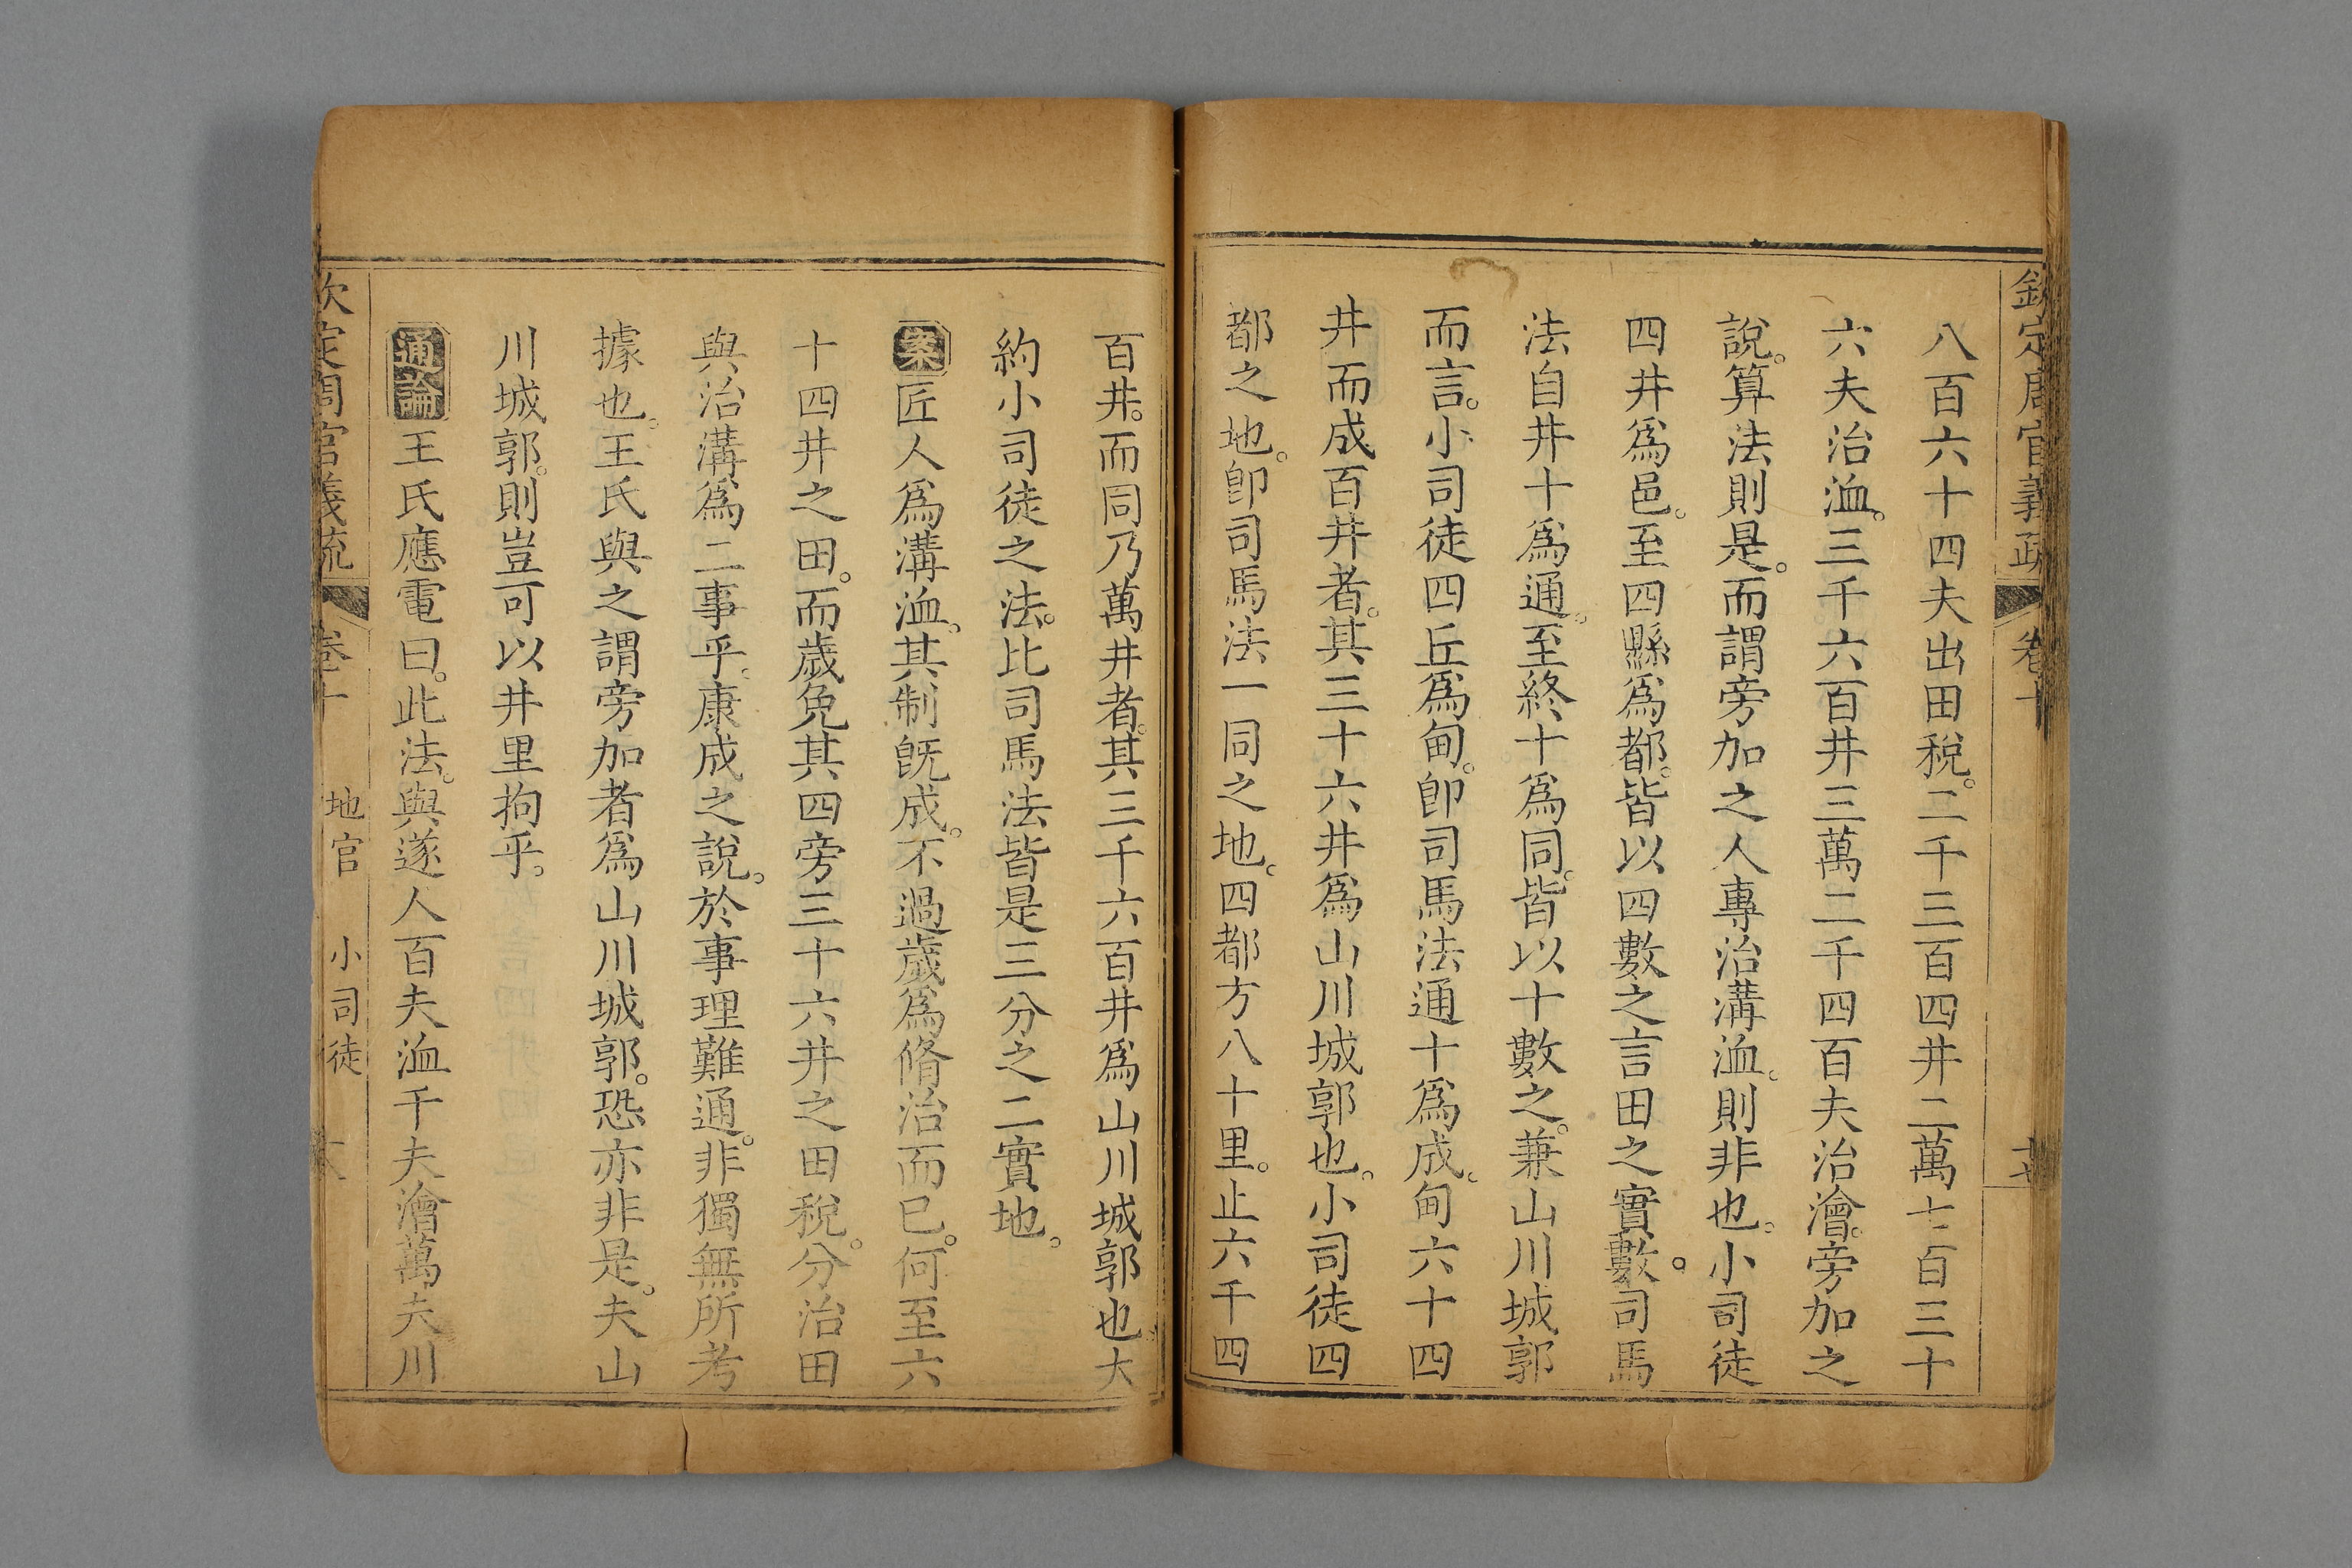 欽定周官義疏 卷十
八百六十四夫出田稅。二千三百四井二萬七百三十
六夫治洫。三千六百井三萬二千四百夫治澮。旁加之
說。算法則是。而謂旁加之人專治溝洫。則非也。小司徒
四井爲邑。至四縣爲都。皆以四數之言田之實數。司馬
法自井十爲通。至終十爲同。皆以十數之。兼山川城郭
而言。小司徒四丘爲甸。卽司馬法通十爲成。甸六十四
井而成百井者。其三十六井爲山川城郭也。小司徒四
都之地。卽司馬法一同之地。四都方八十里。止六千四
百井。而同乃萬井者。其三千六百井爲山川城郭也大
約小司徒之法。比司馬法皆是三分之二實地。
案匠人爲溝洫。其制旣成。不過歲爲脩治而已。何至六
十四井之田。而歲免其四旁三十六井之田稅。分治田
與治溝爲二事乎。康成之說。於事理難通。非獨無所考
據也。王氏與之謂旁加者爲山川城郭。恐亦非是。夫山
川城郭。則豈可以井里拘乎。
通論王氏應電曰。此法。與遂人百夫洫千夫澮萬夫川
欽定周官義疏 卷十 地官 小司徒